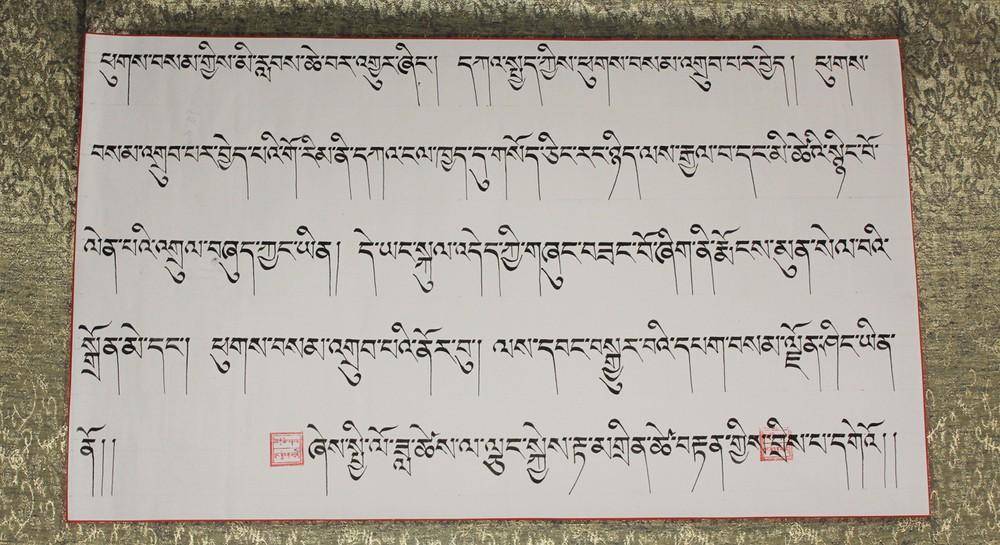 ཕུགས་བསམ་གྱིས་མི་རླབས་ཆེ་བར་འགྱུར་ཞིང་། དཀའ་སྤྱད་ཀྱིས་ཕུགས་བསམ་འགྲུབ་པར་བྱེད། ཕུགས་
བསམ་འགྲུབ་པར་བྱེད་པའི་གོ་རིམ་ནི་དཀའ་ངལ་ཁྱད་དུ་གསོད་ཅིང་རང་ཉིད་ལས་རྒྱལ་བ་དང་མི་ཚེའི་སྙིང་པོ་
ལེན་པའི་འགྲུལ་བཞུད་ཀྱང་ཡིན། དེ་ཡང་སྐུལ་འདེད་ཀྱི་གཞུང་བཟང་པོ་ཞིག་ནི་རྨོངས་མུན་སེལ་བའི་
སྒྲོན་མེ་དང་། ཕུགས་བསམ་འགྲུབ་པའི་ནོར་བུ། ལས་དབང་བསྒྱུར་བའི་དཔག་བསམ་ལྗོན་ཤིང་ཡིན་
ནོ།།།
ཞེས་སྤྱི་ལོ་ཟླ་ཚེས་ལ་ལྕང་སྐྱེས་རྟ་མགྲིན་ཚེ་བརྟན་གྱིས་བྲིས་པ་དགེའོ།།